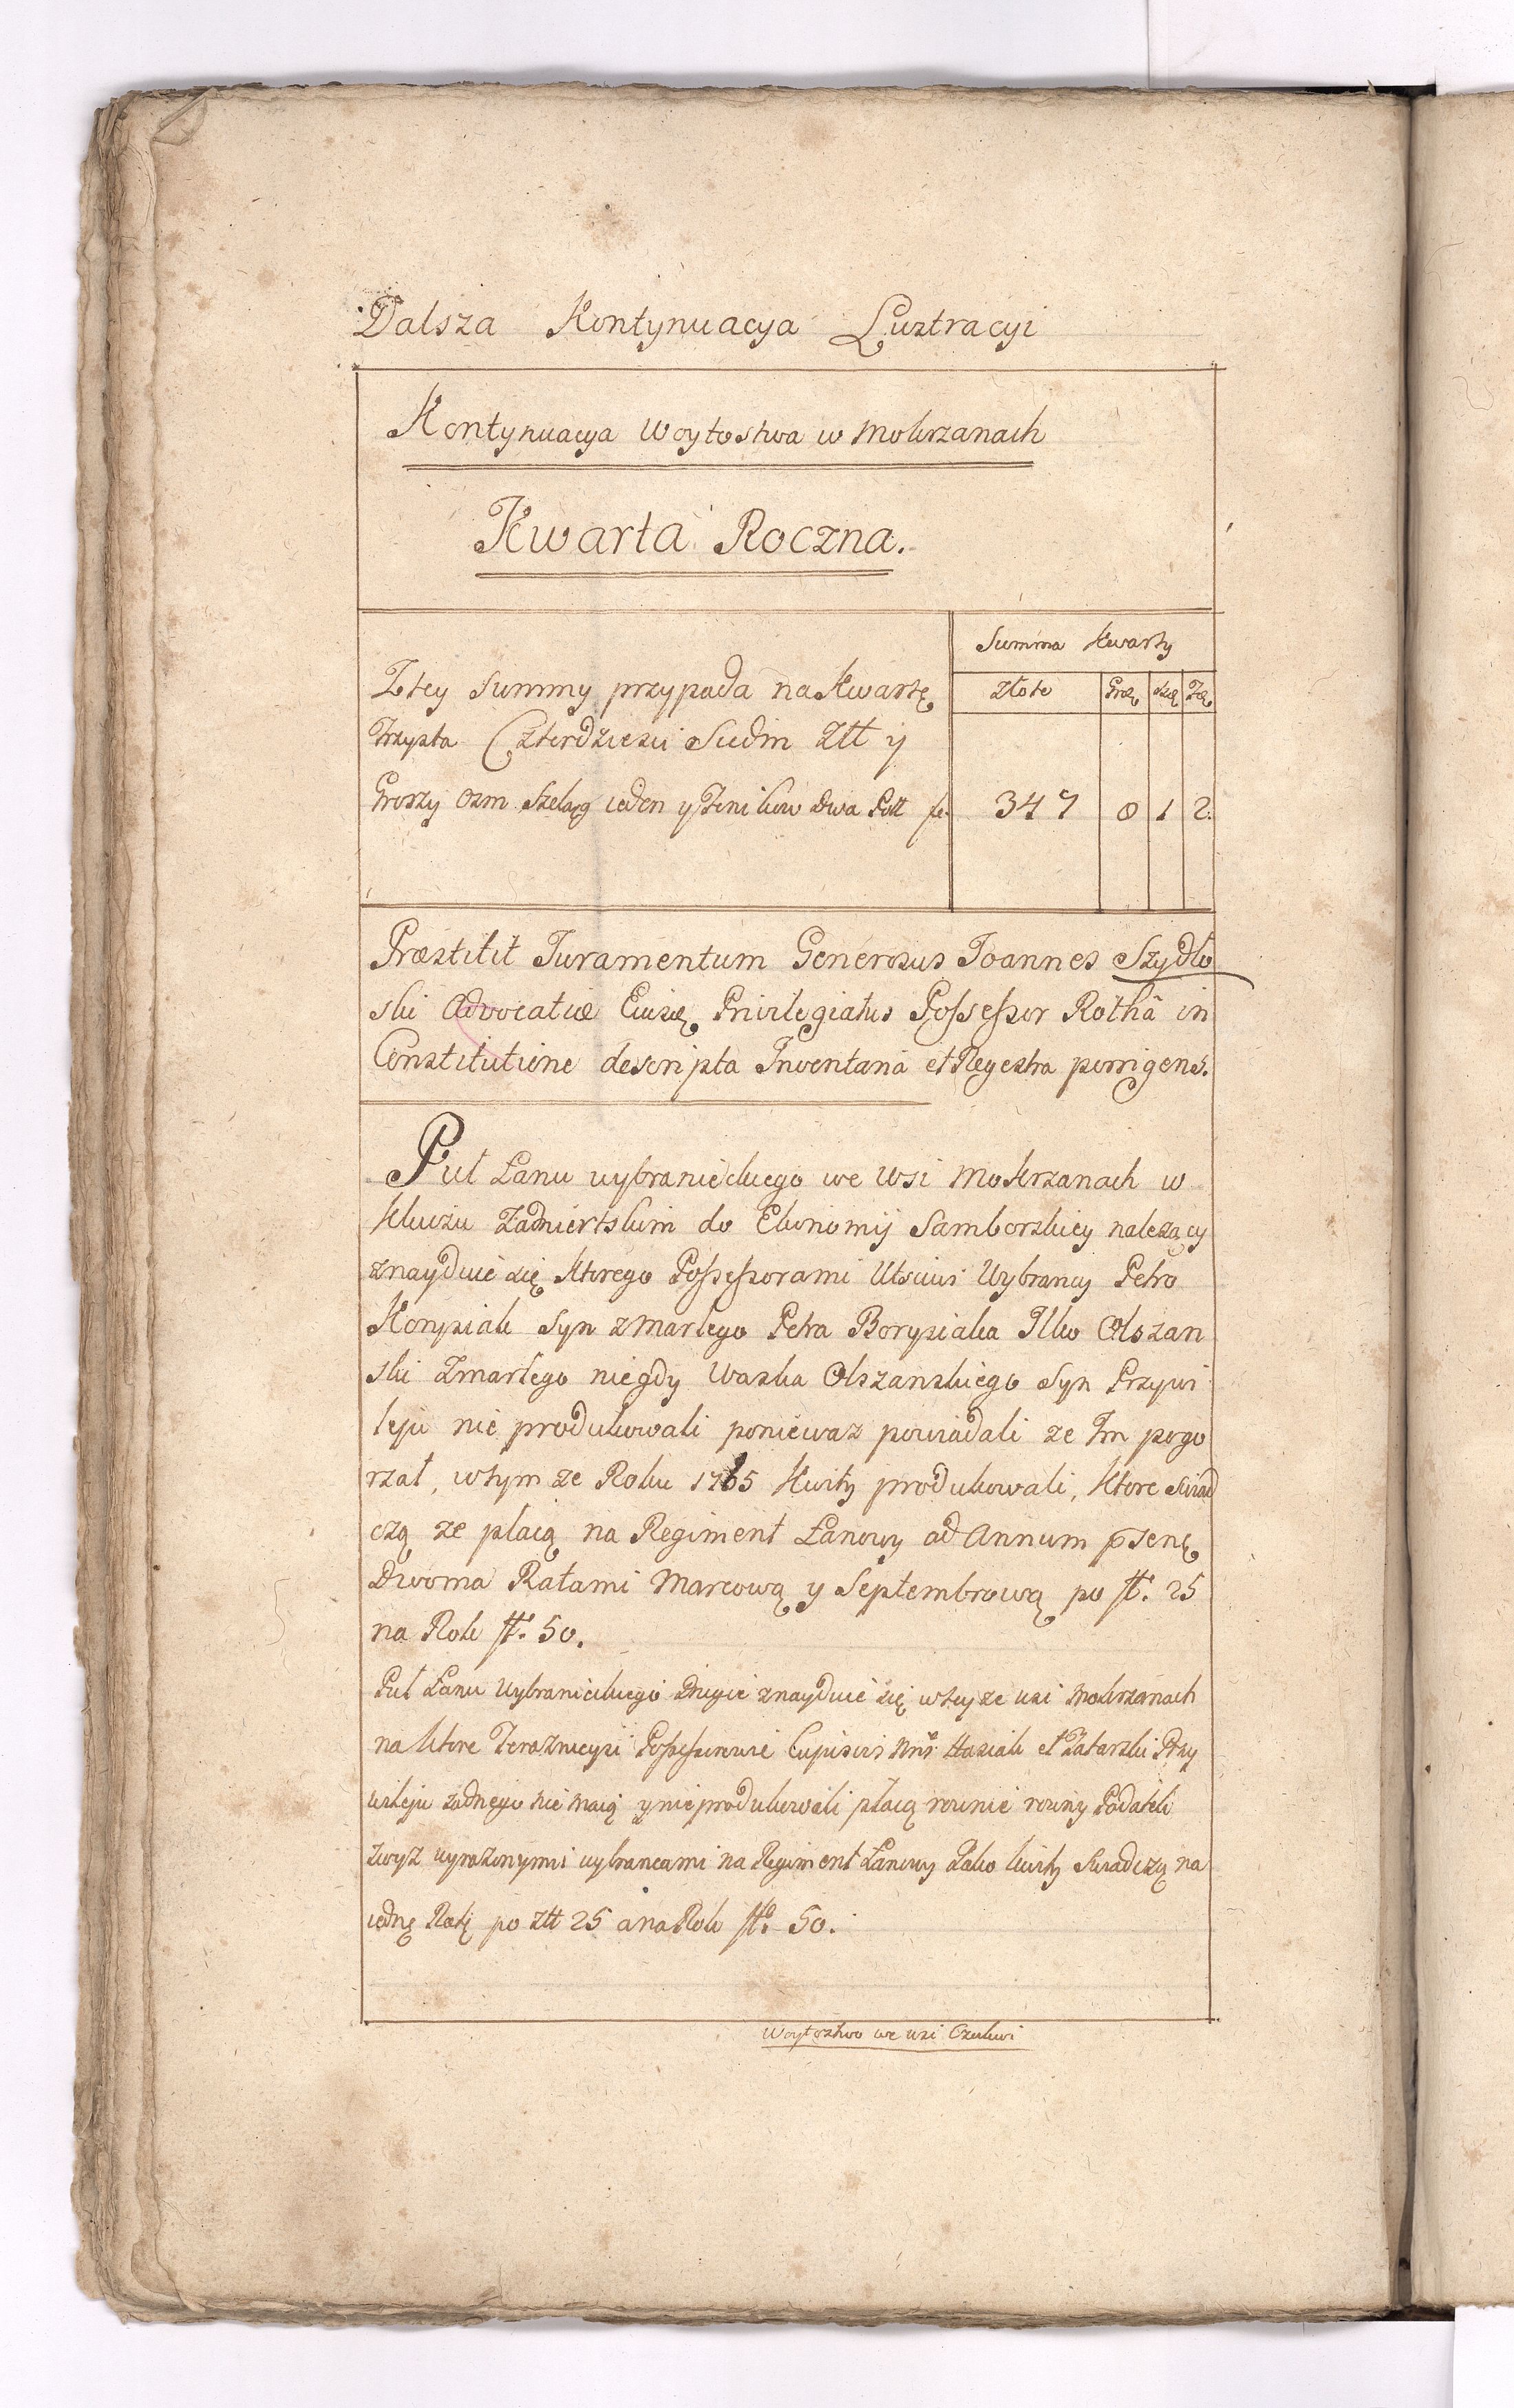 Dalsza Kontynuacya Lustracyi
Kontynuacya Woytostwa w Mokrzanach
Kwarta Roczna.
Summa Kwarty
Z tey Summy przypada na Kwartę
złote Grosz Szel
Trzysta Czterdziesci Siedm Złł y
Groszy osm Szeląg ieden y Fenikow dwa Poll fl.
347 8 1 2.
Præstitit Juramentum Generosus Joannes Szydło
ski Advocatiæ Privilegiatus Possessor Rothâ in
Constitutione descripta Inventaria et Regestra porrigens.
Puł Łanu wybranieckiego we Wsi Mokrzanach w
kluczu do Ekonomij Samborskiey należący
znayduie się ktorego Possessorami Utsciwi Wybrancy Petro
Korysiak Syn zmarłego Petra Borysiaka Ilko Olszan
ski Zmarłego niegdy Waska Olszanskiego Syn Przywi
leju nie produkowali poniewaz powiadali ze Im pogo
rzał, w tym ze Roku 1765 Kwity produkowali, Ktore swiad
czą ze płacą na Regiment Łanowy ad Annum
Dwoma Ratami Marcową y Septembrową po fł. 25
na Rok fł. 50.
Puł Łanu Wybranieckiego drugie znayduie się w teyze wsi Mokrzanach
na ktore Teraznieysi Possessorowie Hasiak et Tatarski Przy
wileju zadnego nie maią y nie produkowali płacą rownie rowny Podatek
zwyz wyrazonymi wybrancami na Regiment Łanowy Jako kwity Swiadczą na
iednę Ratę po Złł 25 a na Rok fło. 50.
Woytostwo we wsi